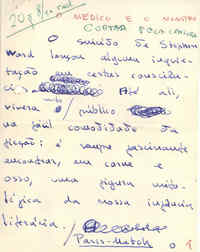 O MEDICO E O MINISTRO
O suicídio de Stephen
Ward lançou alguma inquie-
tação em certas consciên-
cias. Até ali,
vivera o público
na fácil comodidade da
ficção: é sempre fascinante
encontrar, em carne e
osso, uma figura mito-
lógica da nossa infância
literária.
Paris-Match
1